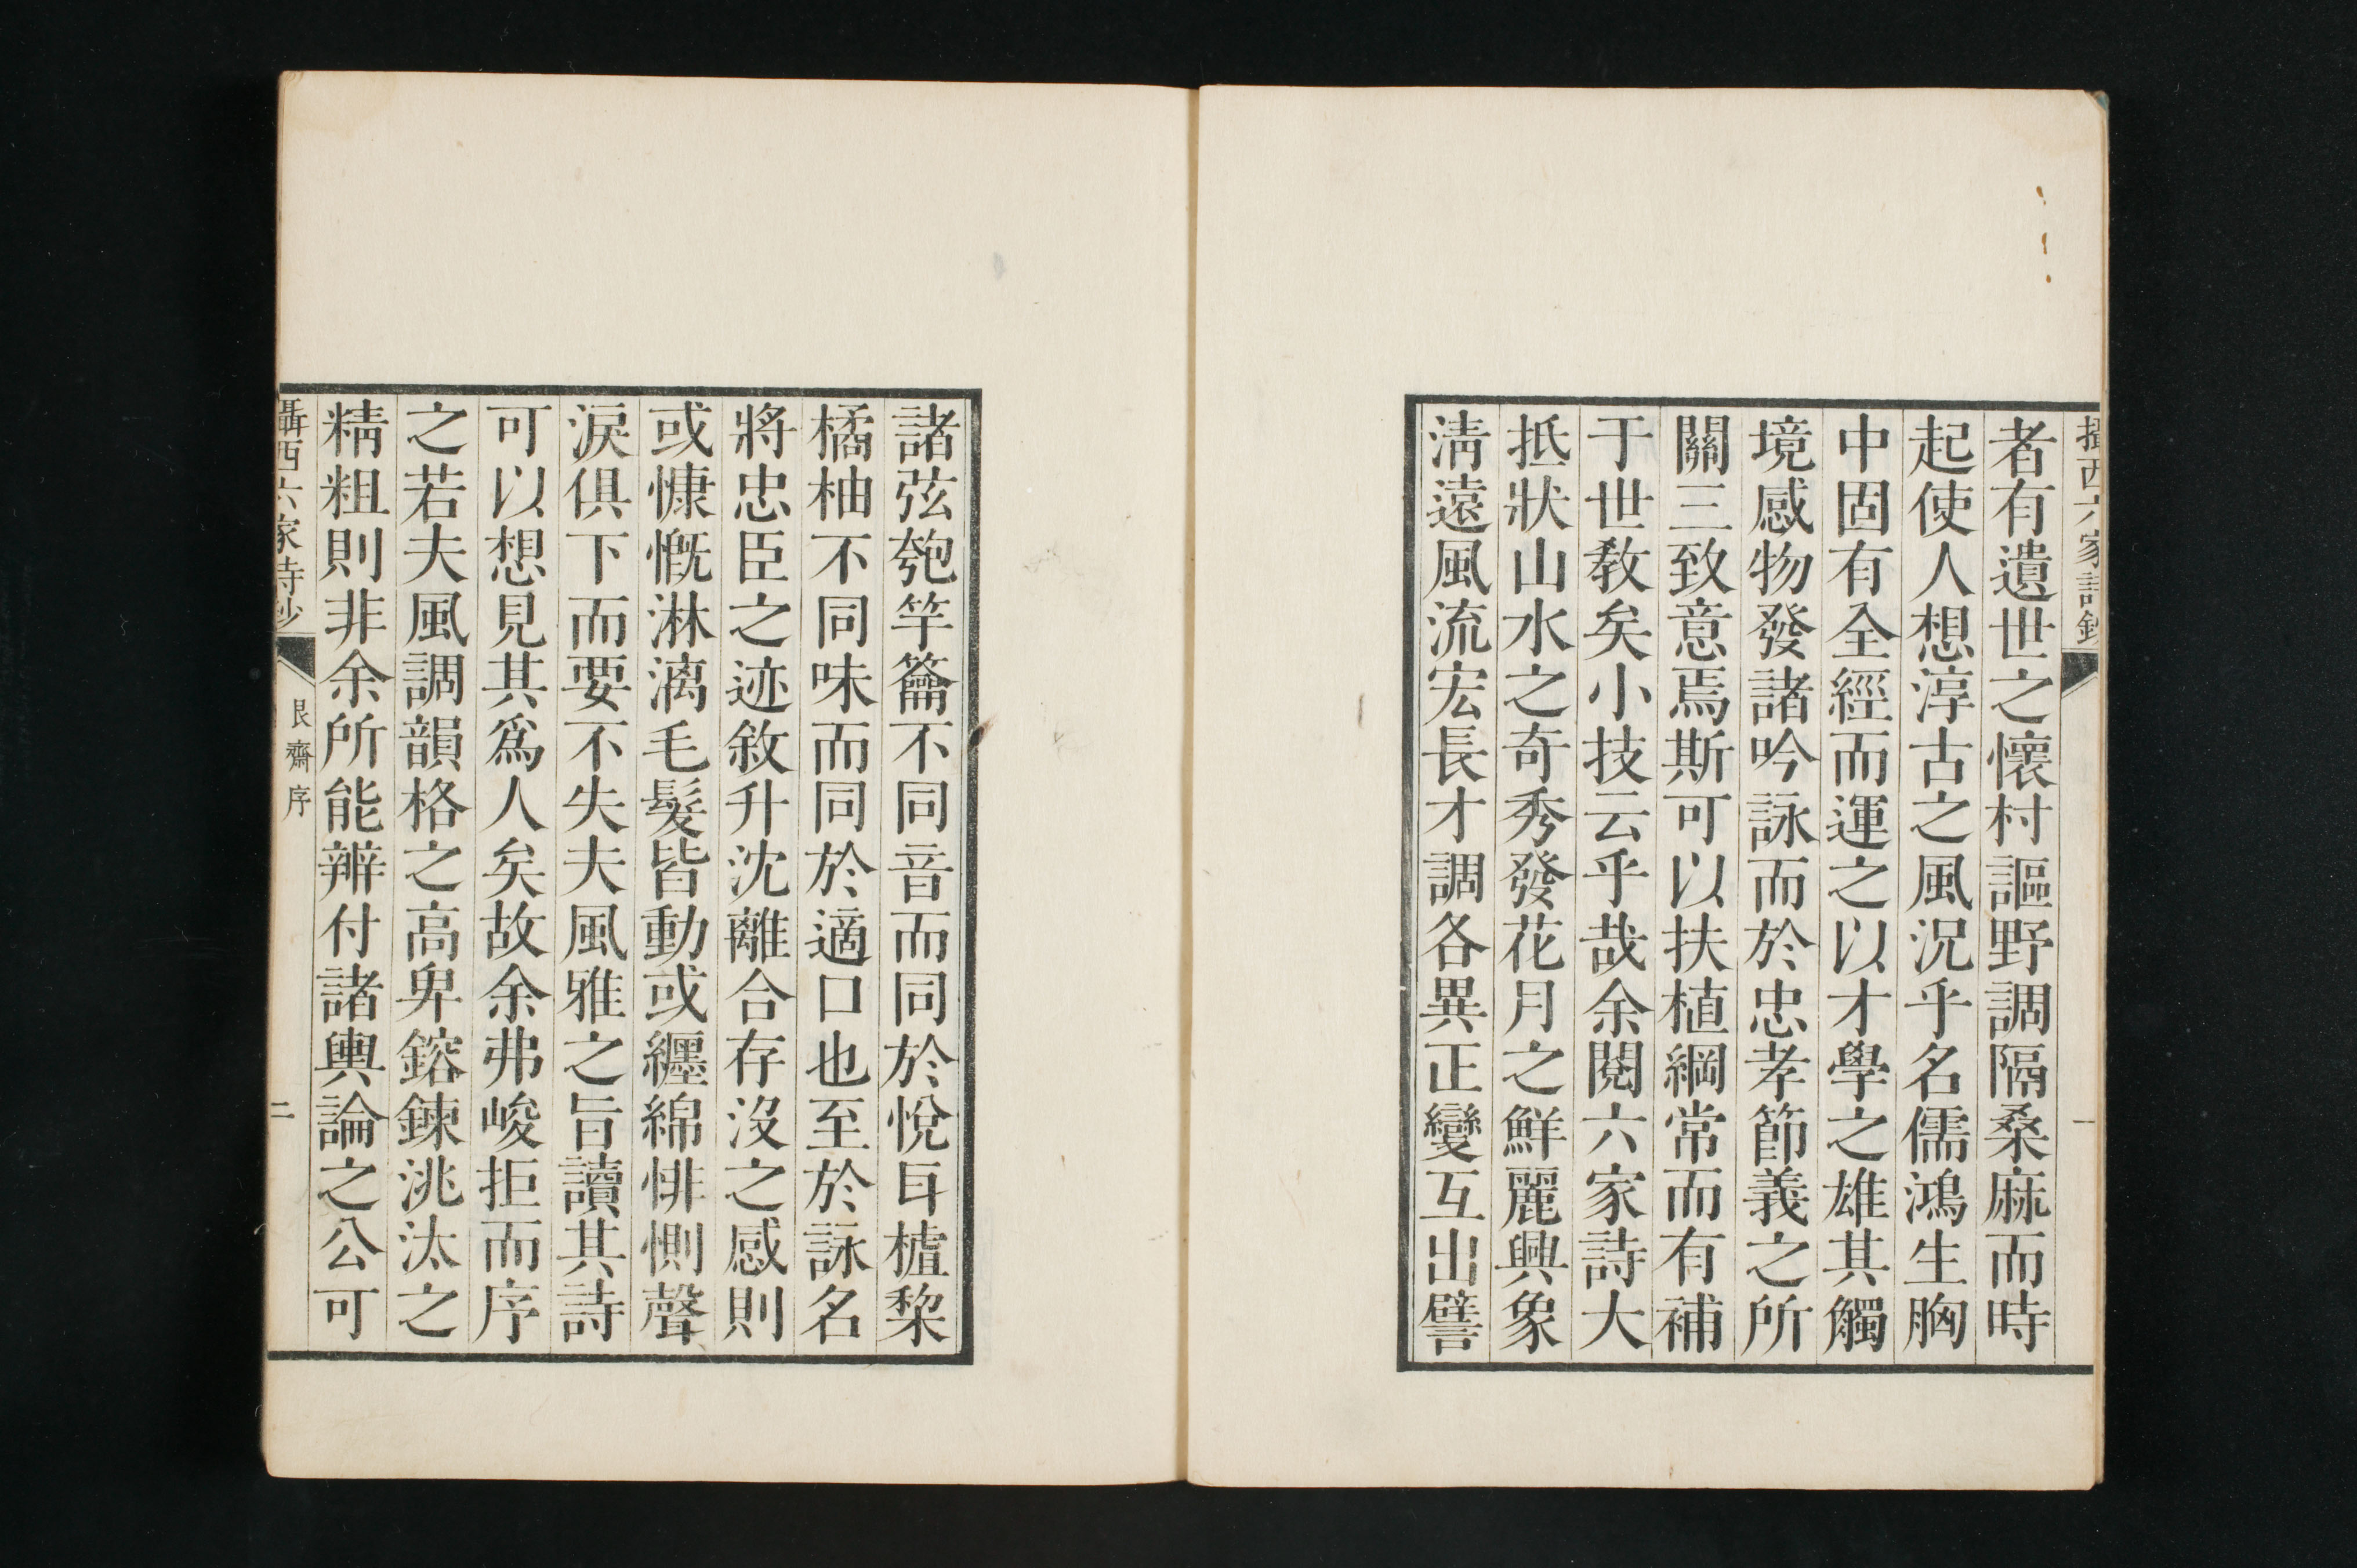 攝西六家詩鈔
一
者有遺世之懷村謳野調隔桑麻而時
起使人想淳古之風況乎名儒鴻生胸
中固有全經而運之以才學之雄其觸
境感物發諸吟詠而於忠孝節義之所
關三致意焉斯可以扶植綱常而有補
于世教矣小技云乎哉余閱六家詩大
抵狀山水之奇秀發花月之鮮麗興象
淸遠風流宏長才調各異正變互出譬
諸弦匏竽籥不同音而同於悅耳樝棃
橘柚不同味而同於適口也至於詠名
將忠臣之迹敘升沈離合存沒之感則
或慷慨淋漓毛髮皆動或纏綿悱惻聲
淚俱下而要不失夫風雅之旨讀其詩
可以想見其爲人矣故余弗峻拒而序
之若夫風調韻格之高卑鎔鍊洮汰之
精粗則非余所能辨付諸輿論之公可
攝西六家詩鈔
艮齋序
二